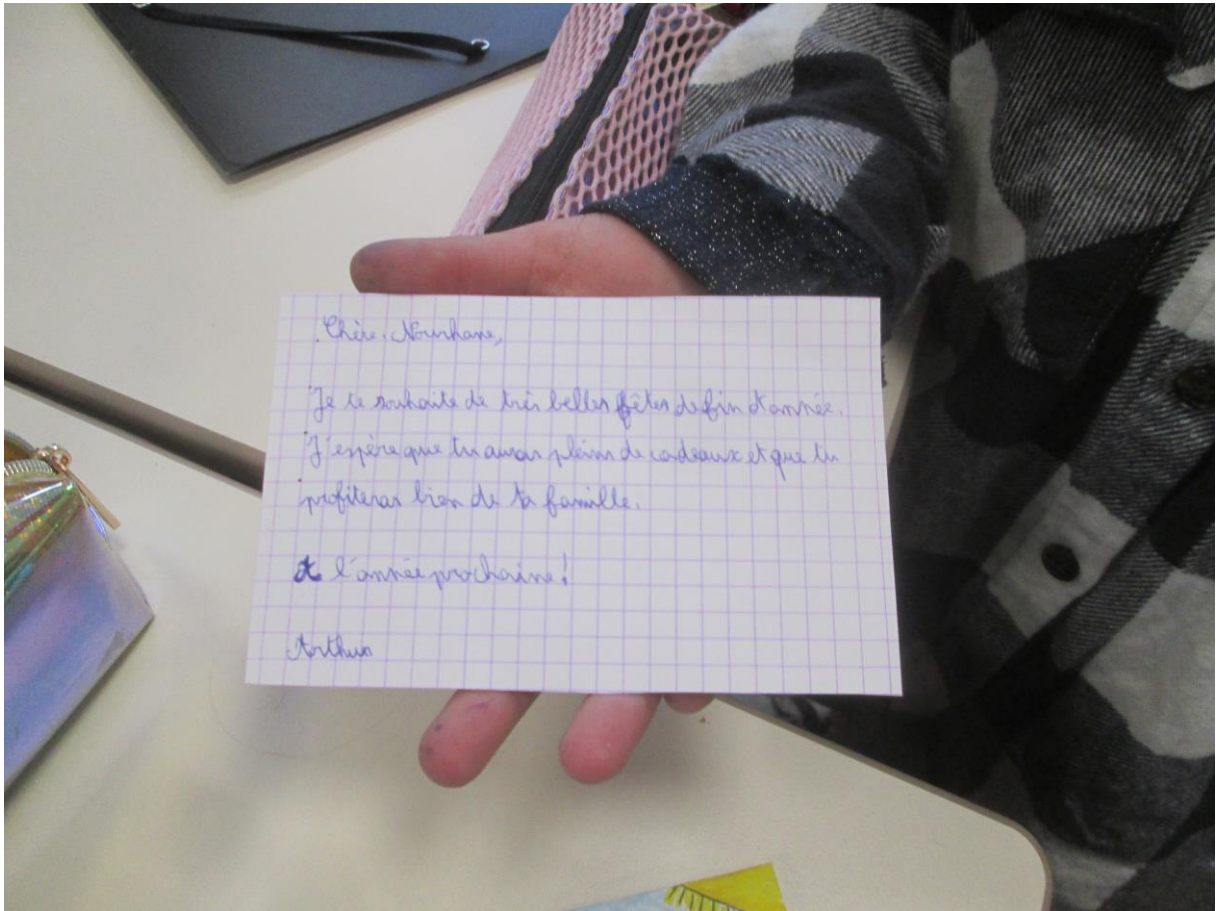 Chère Nourhane,
Je te souhaite de très belles fêtes de fin d'année.
J'espère que tu auras pleins de cadeaux et que tu
profiteras bien de ta famille.
A l'année prochaine!
Arthur